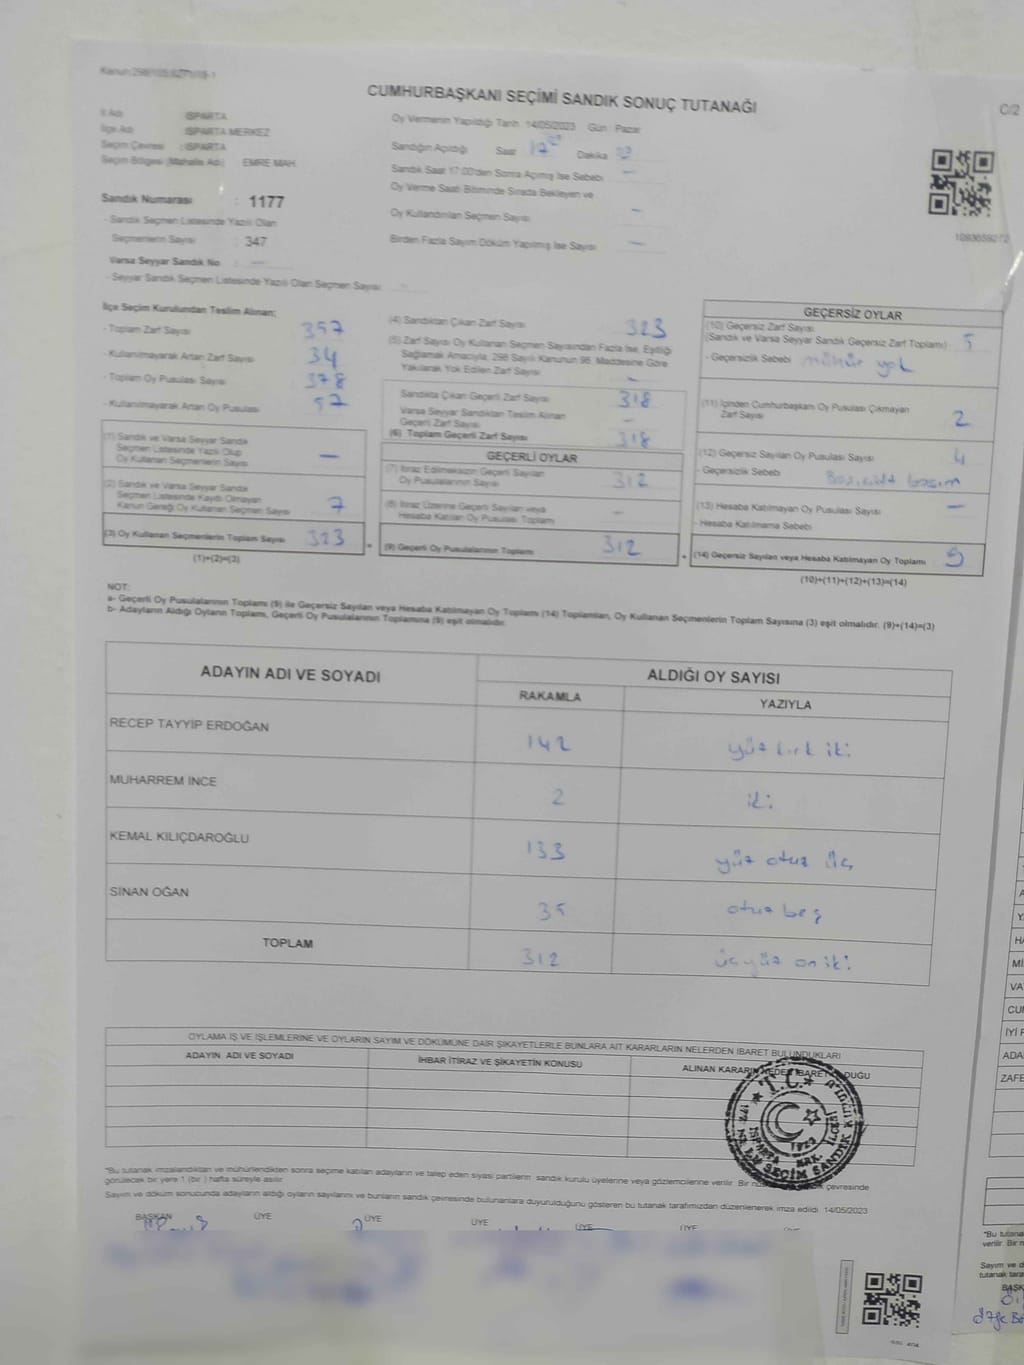 CUMHURBAŞKANI SEÇİMİ SANDIK SONUÇ TUTANAĞI
C/2
İl Adı : ISPARTA
İlçe Adı : ISPARTA MERKEZ
Seçim Çevresi : ISPARTA
Seçim Bölgesi (Mahalle Adı) EMRE MAH.
Sandık Numarası : 1177
- Sandık Seçmen Listesinde Yazılı Olan
Seçmenlerin Sayısı : 347
Varsa Seyyar Sandık No : —
- Seyyar Sandık Seçmen Listesinde Yazılı Olan Seçmen Sayısı
Oy Vermenin Yapıldığı Tarih :14/05/2023 Gün : Pazar
Sandığın Açıldığı Saat 17 Dakika
Sandık Saat 17:00'den Sonra Açılmış İse Sebebi —
Oy Verme Saati Bitiminde Sırada Bekleyen ve
Oy Kullandırılan Seçmen Sayısı —
Birden Fazla Sayım Döküm Yapılmış İse Sayısı —
İlçe Seçim Kurulundan Teslim Alınan;
- Toplam Zarf Sayısı 357
- Kullanılmayarak Artan Zarf Sayısı 34
- Toplam Oy Pusulası Sayısı 378
- Kullanılmayarak Artan Oy Pusulası 57
(1) Sandık ve Varsa Seyyar Sandık
Seçmen Listesinde Yazılı Olup
Oy Kullanan Seçmenlerin Sayısı —
(2) Sandık ve Varsa Seyyar Sandık
Seçmen Listesinde Kayıtlı Olmayan
Kanun Gereği Oy Kullanan Seçmen Sayısı 7
(3) Oy Kullanan Seçmenlerin Toplam Sayısı 323
(1)+(2)=(3)
(4) Sandıktan Çıkan Zarf Sayısı 323
(5) Zarf Sayısı Oy Kullanan Seçmen Sayısından Fazla İse, Eşitliği
Sağlamak Amacıyla, 298 Sayılı Kanunun 98. Maddesine Göre
Yakılarak Yok Edilen Zarf Sayısı —
Sandıkta Çıkan Geçerli Zarf Sayısı 318
Varsa Seyyar Sandıktan Teslim Alınan
Geçerli Zarf Sayısı —
(6) Toplam Geçerli Zarf Sayısı 318
GEÇERLİ OYLAR
(7) İtiraz Edilmeksizin Geçerli Sayılan
Oy Pusulalarının Sayısı 312
(8) İtiraz Üzerine Geçerli Sayılan veya
Hesaba Katılan Oy Pusulası Toplamı —
(9) Geçerli Oy Pusulalarının Toplamı 312
GEÇERSİZ OYLAR
(10) Geçersiz Zarf Sayısı
(Sandık ve Varsa Seyyar Sandık Geçersiz Zarf Toplamı) : 5
- Geçersizlik Sebebi mühür yok
(11) İçinden Cumhurbaşkanı Oy Pusulası Çıkmayan
Zarf Sayısı 2
(12) Geçersiz Sayılan Oy Pusulası Sayısı 4
- Geçersizlik Sebebi
(13) Hesaba Katılmayan Oy Pusulası Sayısı —
- Hesaba Katılmama Sebebi
(14) Geçersiz Sayılan veya Hesaba Katılmayan Oy Toplamı
(10)+(11)+(12)+(13)=(14)
NOT:
a- Geçerli Oy Pusulalarının Toplamı (9) ile Geçersiz Sayılan veya Hesaba Katılmayan Oy Toplamı (14) Toplamları, Oy Kullanan Seçmenlerin Toplam Sayısına (3) eşit olmalıdır. (9)+(14)=(3)
b- Adayların Aldığı Oyların Toplamı, Geçerli Oy Pusulalarının Toplamına (9) eşit olmalıdır.
ADAYIN ADI VE SOYADI
ALDIĞI OY SAYISI
RAKAMLA YAZIYLA
RECEP TAYYİP ERDOĞAN 142 yüz kırk iki
MUHARREM İNCE 2 iki
KEMAL KILIÇDAROĞLU 133 yüz otuz üç
SİNAN OĞAN 35 otuz beş
TOPLAM 312 üçyüz on iki
OYLAMA İŞ VE İŞLEMLERİNE VE OYLARIN SAYIM VE DÖKÜMÜNE DAİR ŞİKAYETLERLE BUNLARA AİT KARARLARIN NELERDEN İBARET BULUNDUKLARI
ADAYIN ADI VE SOYADI İHBAR İTİRAZ VE ŞİKAYETİN KONUSU ALINAN KARARIN NEDEN İBARET OLDUĞU
T.C.
1923
*Bu tutanak imzalandıktan ve mühürlendikten sonra seçime katılan adayların ve talep eden siyasi partilerin sandık kurulu üyelerine veya gözlemcilerine verilir. Bir çevresinde
görülecek bir yere 1 (bir ) hafta süreyle asılır.
Sayım ve döküm sonucunda adayların aldığı oyların sayılarını ve bunların sandık çevresinde bulunanlara duyurulduğunu gösteren bu tutanak tarafımızdan düzenlenerek imza edildi. 14/05/2023
BAŞKAN ÜYE ÜYE ÜYE ÜYE ÜYE ÜYE